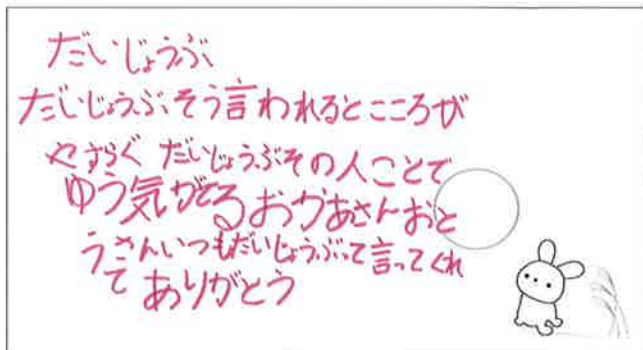 だいじょうぶ
だいじょうぶそう言われるとこころが
やすらぐ だいじょうぶその人ことで
ゆう気がでるおかあさんおと
うさんいつもだいじょうぶって言ってくれ
て ありがとう